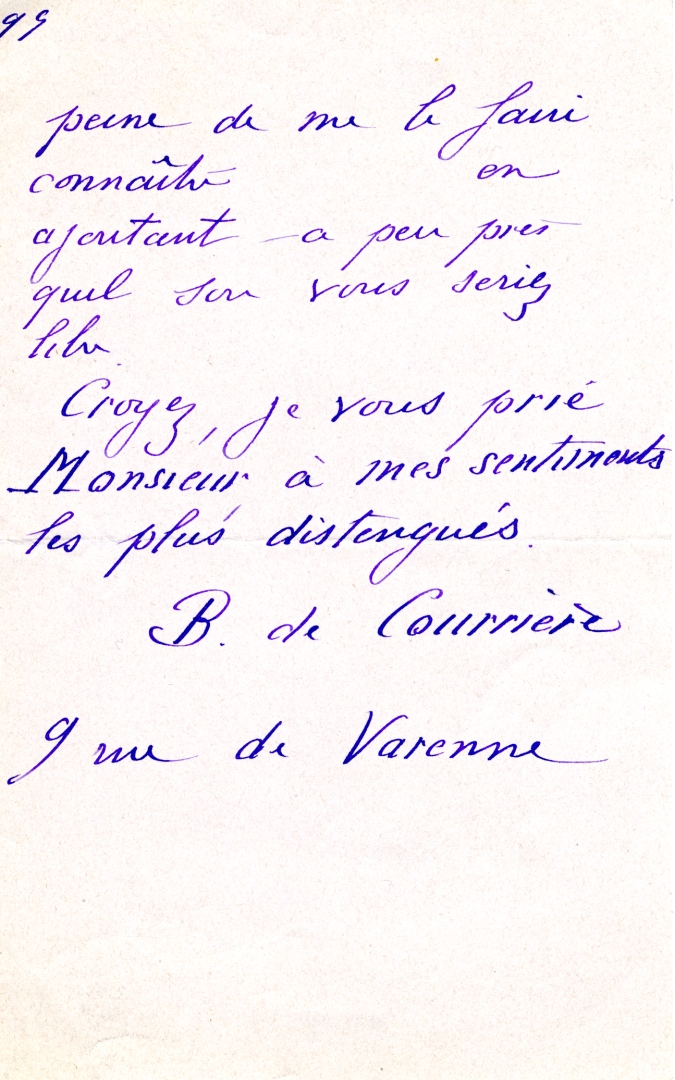 99
peine de me le faire
connaître en
ajoutant a peu pres
quel soir vous seriez
libre.
Croyez, je vous prie
Monsieur à mes sentiments
les plus distengués.
B. de Courrière
9 rue de Varenne